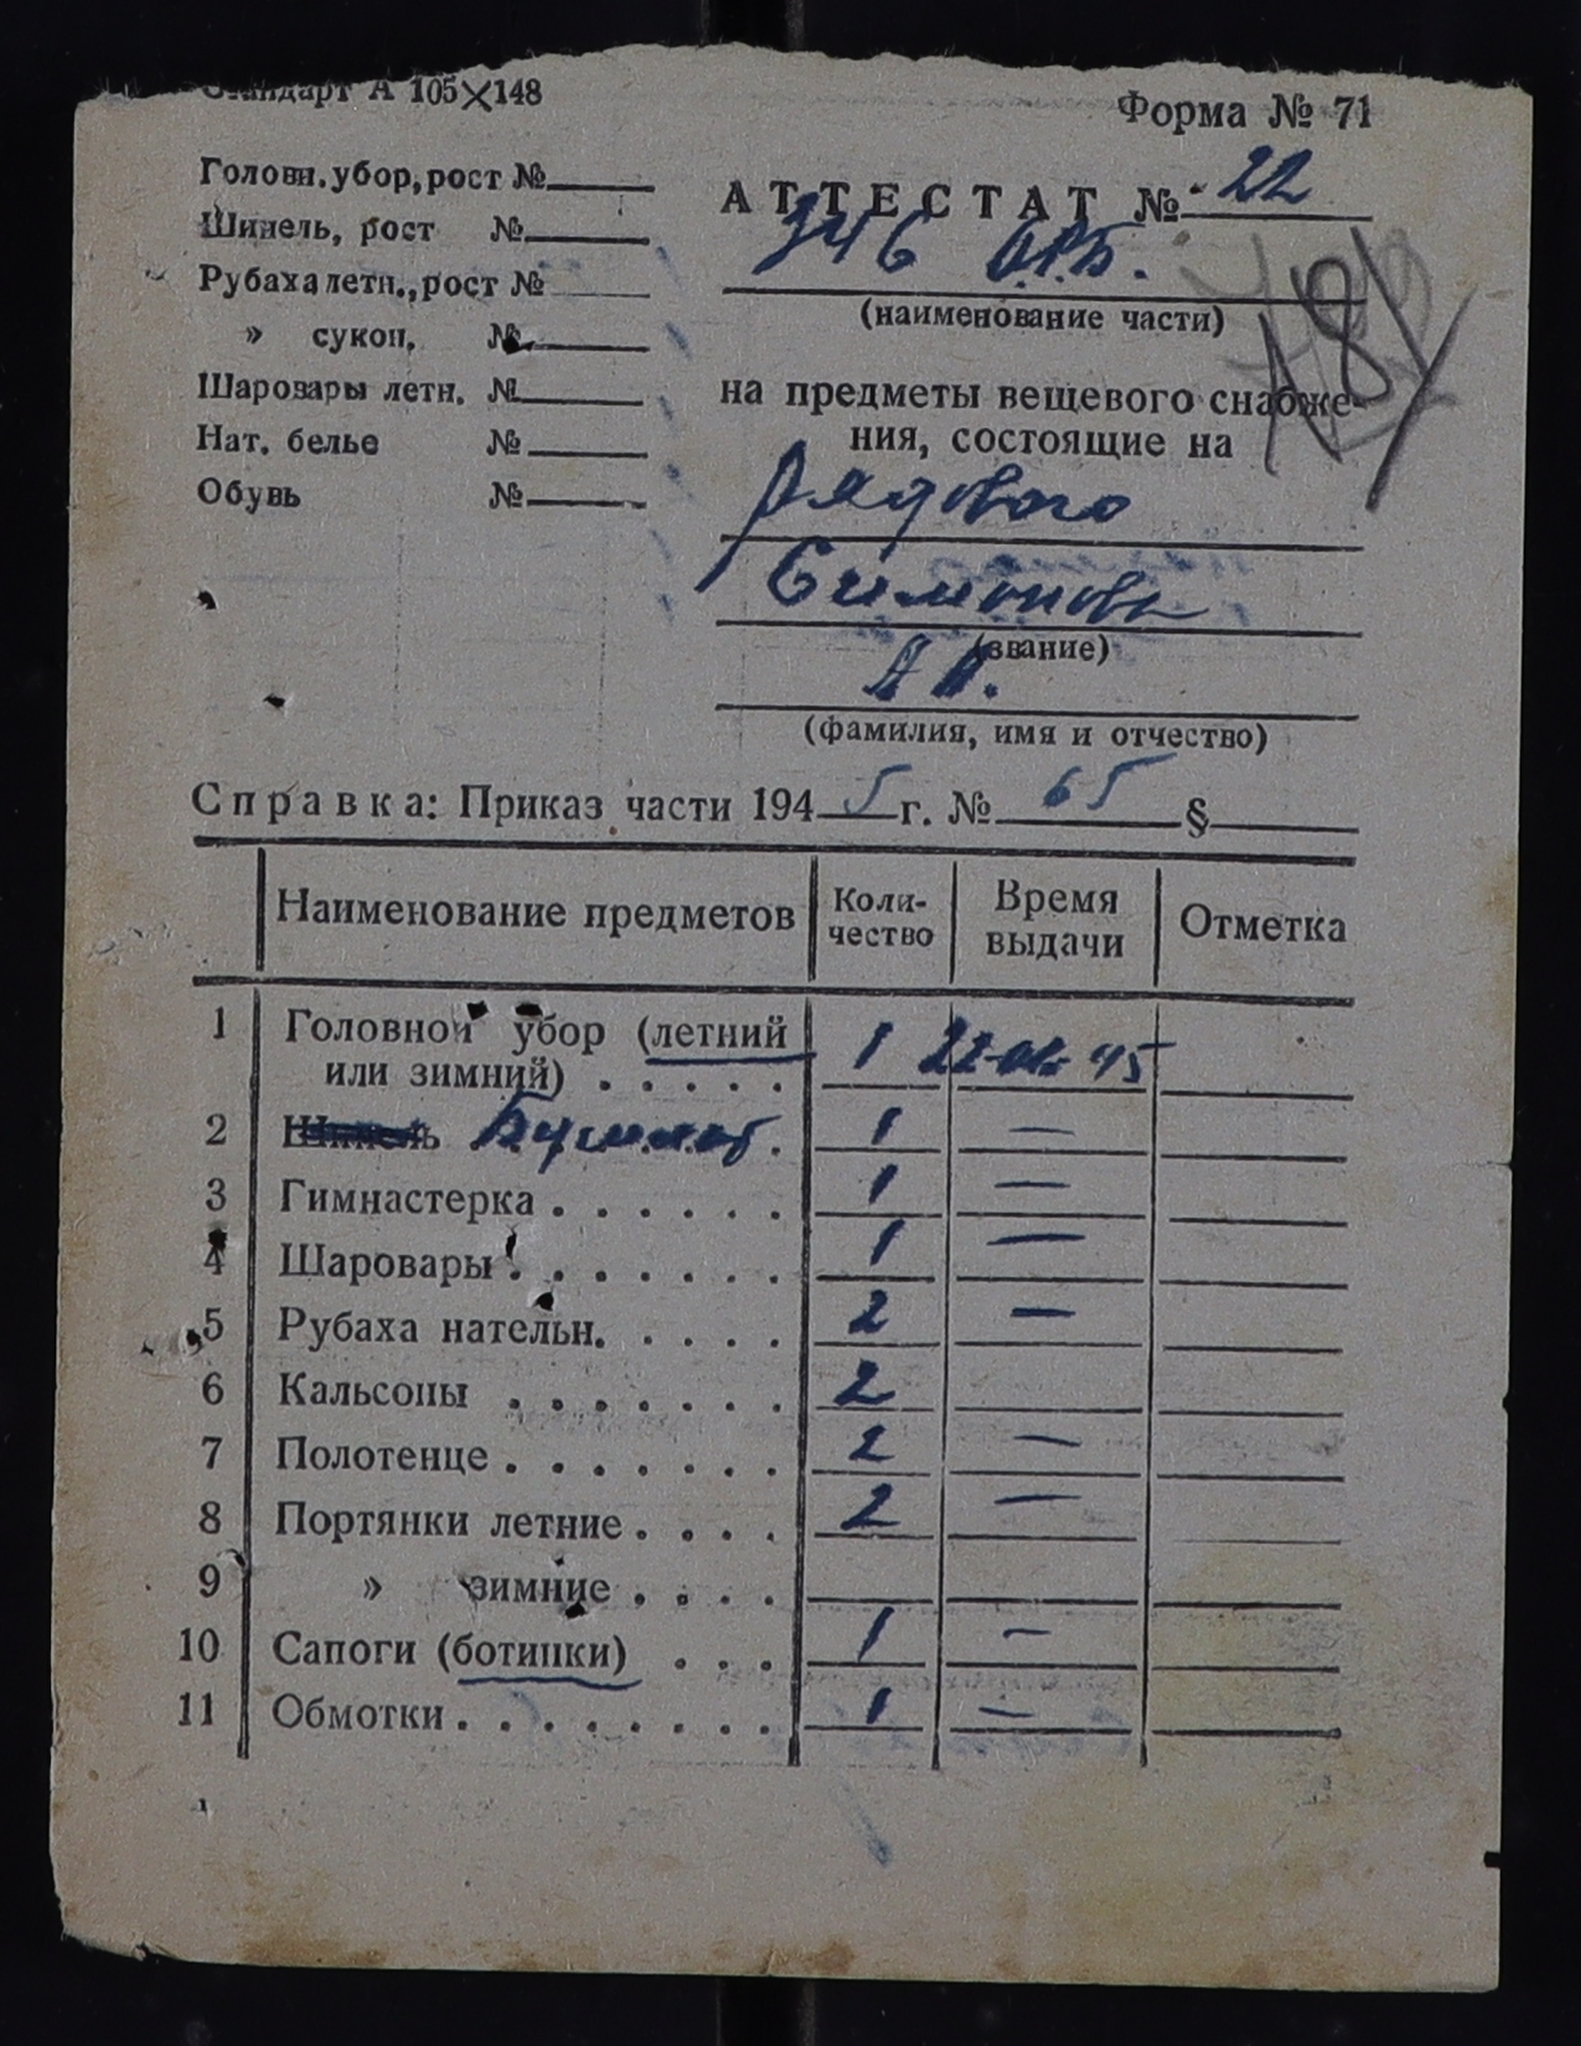 Стандарт А 105×148
Форма № 71
Головн. убор, рост №
Шинель, рост №
Рубаха летн., рост №
» сукон. №
Шаровары летн. №
Нат. белье №
Обувь №
АТТЕСТАТ № 22
346 О.Р.Б.
(наименование части)
на предметы вещевого снабже-
ния, состоящие на
Рядового
Симонов
(звание)
А А.
(фамилия, имя и отчество)
Справка: Приказ части 1945 г. № 65 §
Наименование предметов Коли-чество Время выдачи Отметка
1 Головной убор (летний 1 22 45
или зимний) . . . . .
2 Шинель Бушлат 1 —
3 Гимнастерка . . . . . . 1 —
4 Шаровары . . . . . . . 1 —
5 Рубаха нательн. . . . . 2 —
6 Кальсоны . . . . . . . 2
7 Полотенце . . . . . . . 2 —
8 Портянки летние . . . . 2 —
9 » зимние . . . .
10 Сапоги (ботинки) . . . 1 —
11 Обмотки . . . . . . . . 1 —